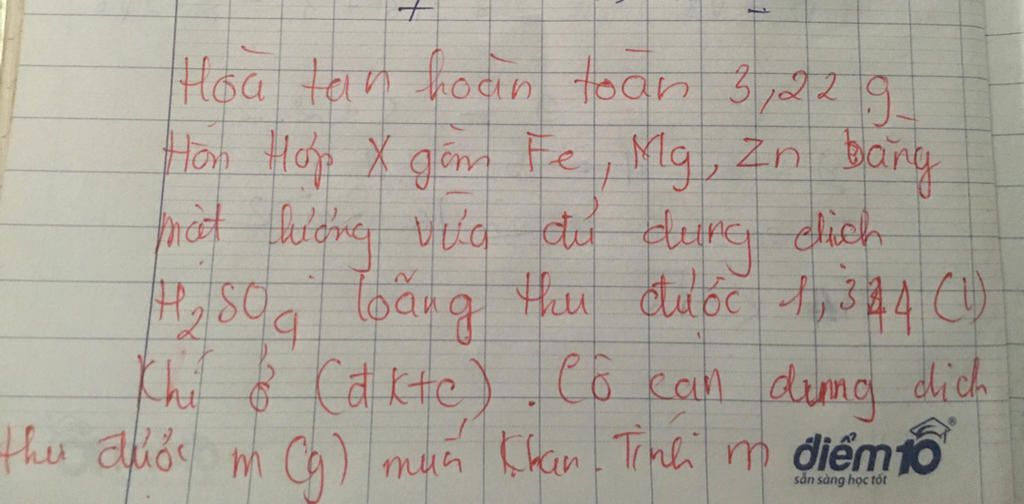 Hoà tan hoàn toàn 3,22 g
Hỗn Hợp X gồm Fe, Mg, Zn bằng
một lượng vừa đủ dung dịch
H2SO4 loãng thu được 1,344 (l)
Khí ở (đktc). Cô cạn dung dịch
thu được m (g) muối khan. Tính m
điểm10
sẵn sàng học tốt